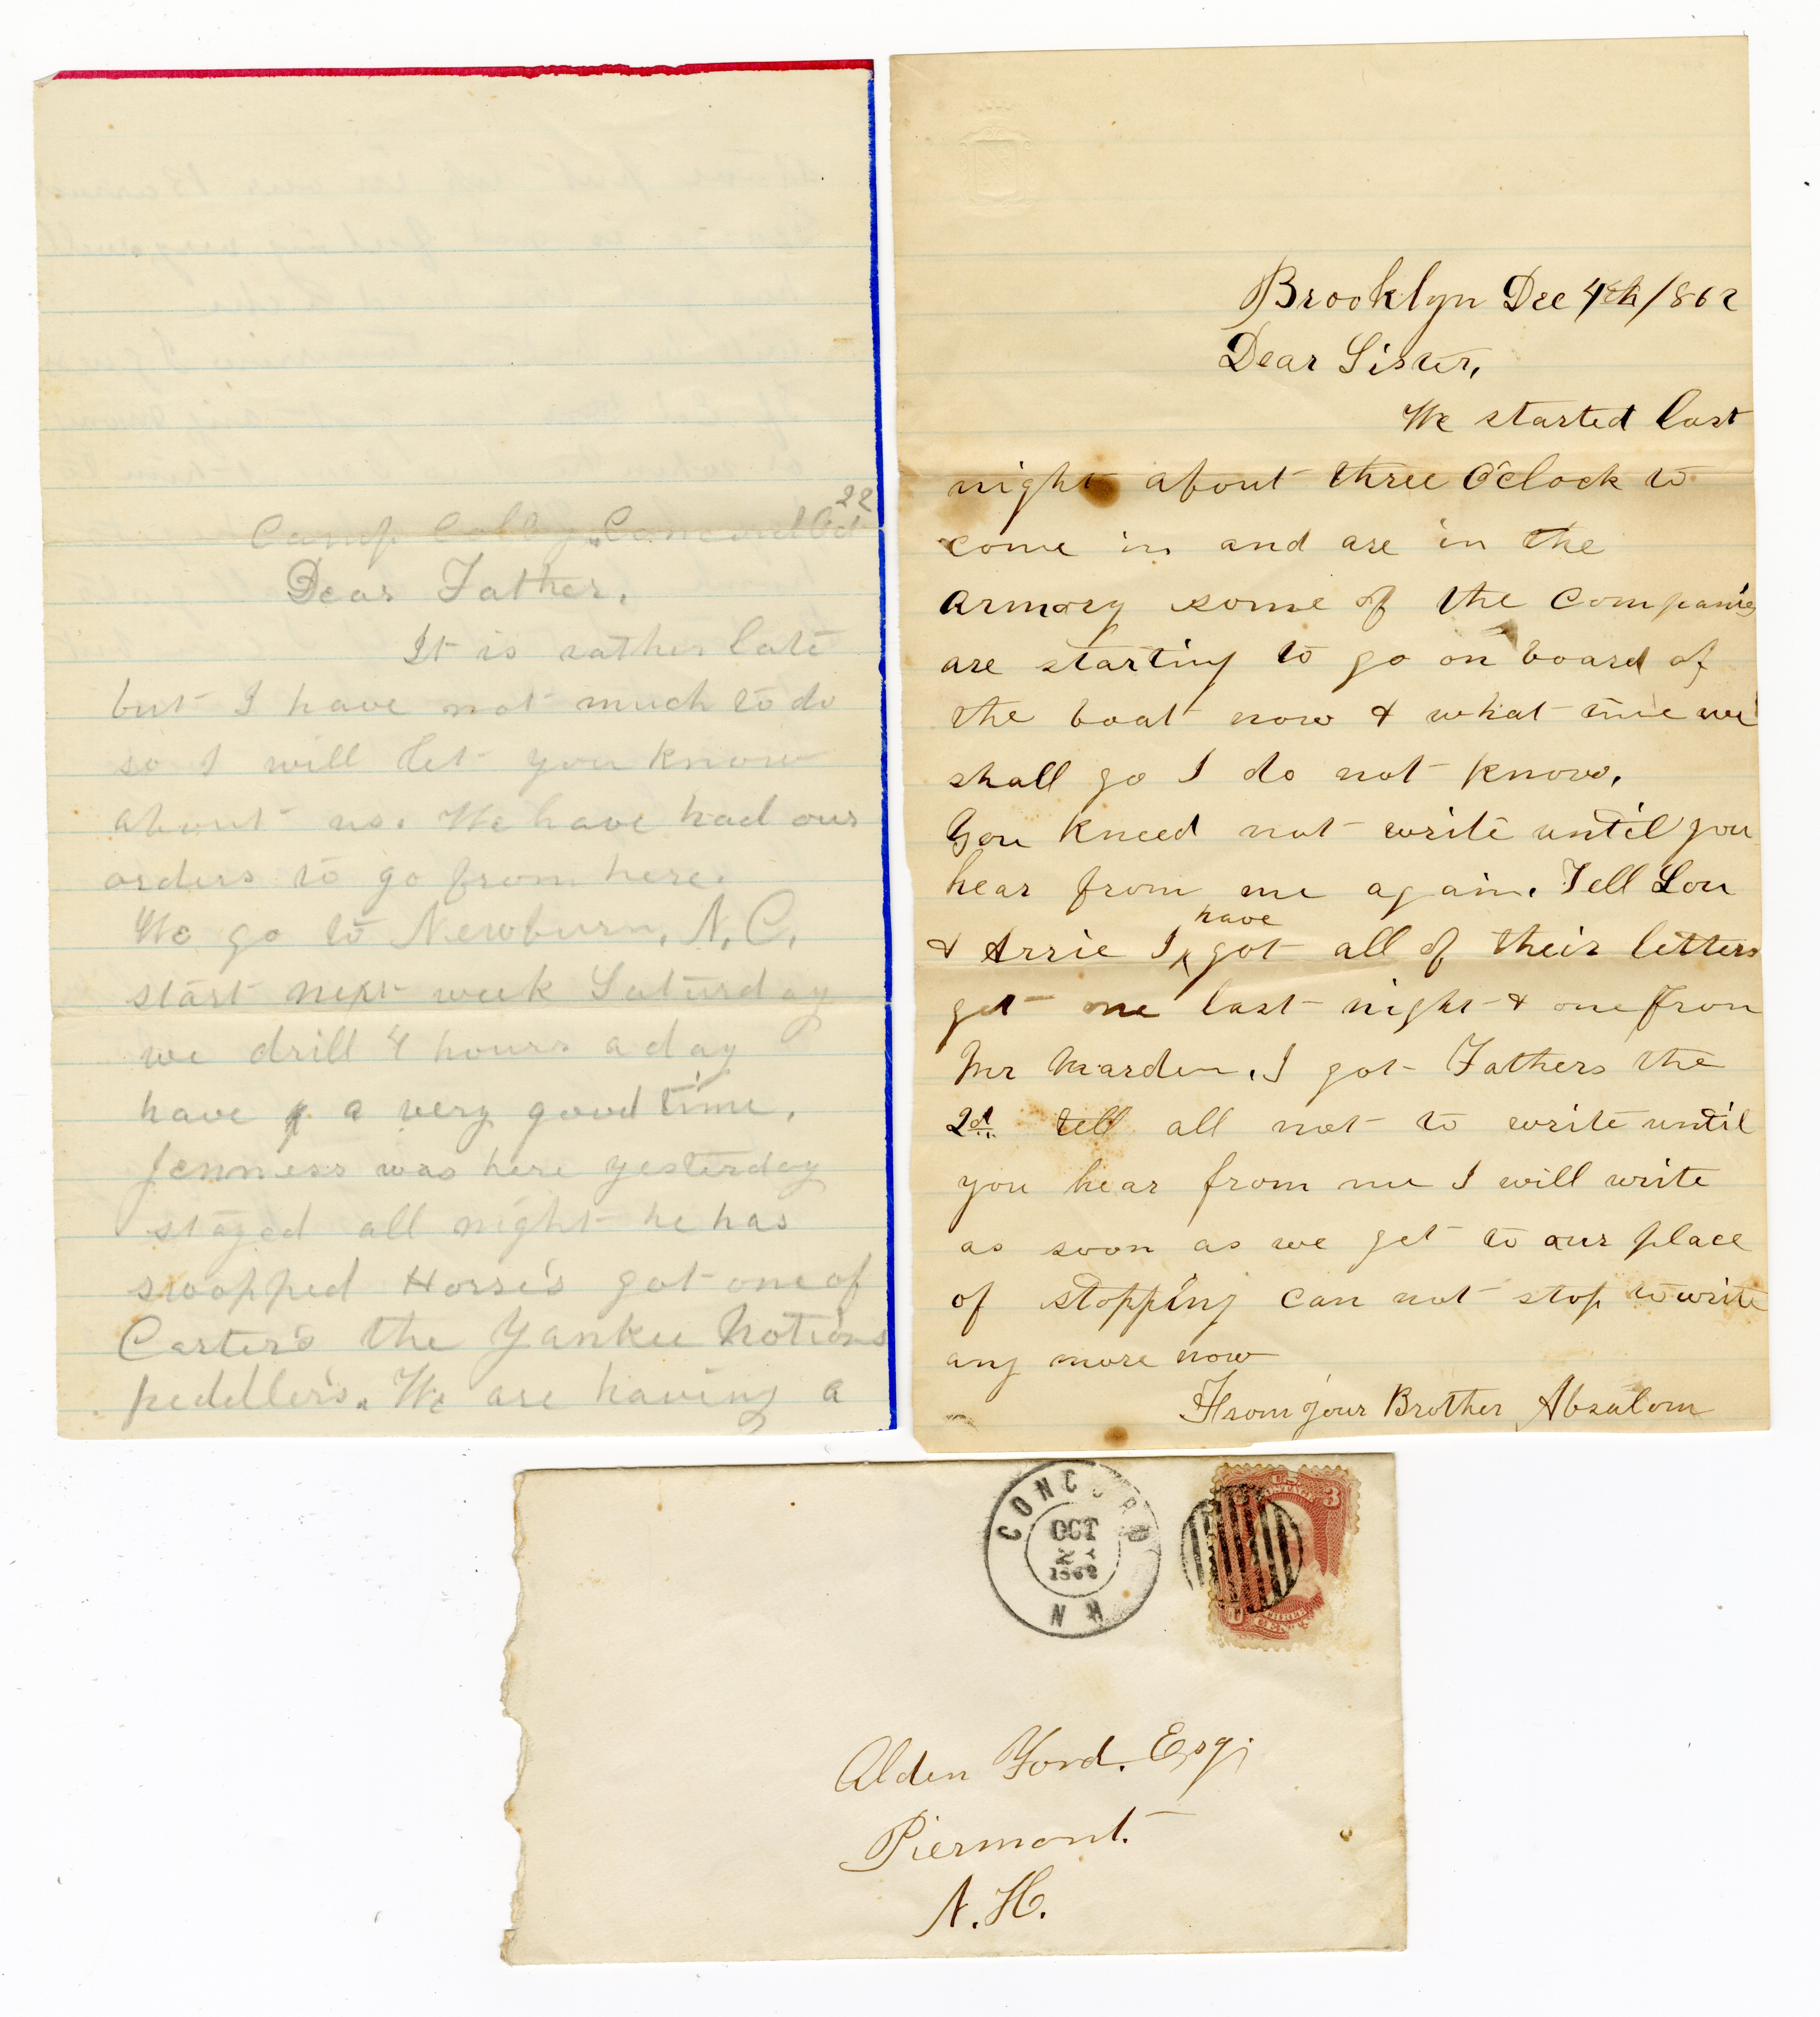 Camp Colby, Concord Oct 22
Dear Father,
It is rather late
but I have not much to do
so I will let you know
about us. We have had our
orders to go from here.
We go to Newburn, N. C.
start next week Saturday
we drill 4 hours a day
have a very good time.
Jenness was here yesterday
stayed all night he has
swopped Horse's got one of
Carter's the Yankee Notions
peddller's. We are having a
Brooklyn Dec 4th /862
Dear Sister,
We started last
night about three O'clock to
come in and are in the
armory some of the Companies
are starting to go on board of
the boat now & what time we
shall go I do not know.
You kneed not write until you
hear from me again. Tell Lou
have
& Arrie I ‸ got all of their letters
got one last night & one from
Mr Marden. I got Fathers the
2d tell all not to write until
you hear from me I will write
as soon as we get to our place
of stopping can not stop to write
any more now
From your Brother Absalom
CONCORD
OCT
1862
N H
U.S. POSTAGE 3
THREE
CENTS
Alden Ford. Esq;
Piermont.
N. H.